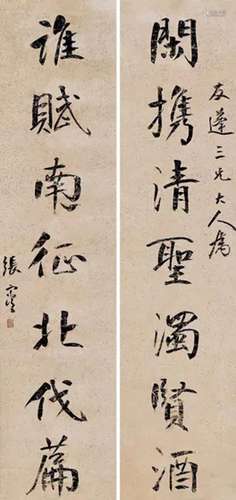 友蓬三兄大人属
閑攜清聖濁賢酒
誰賦南征北伐篇
張